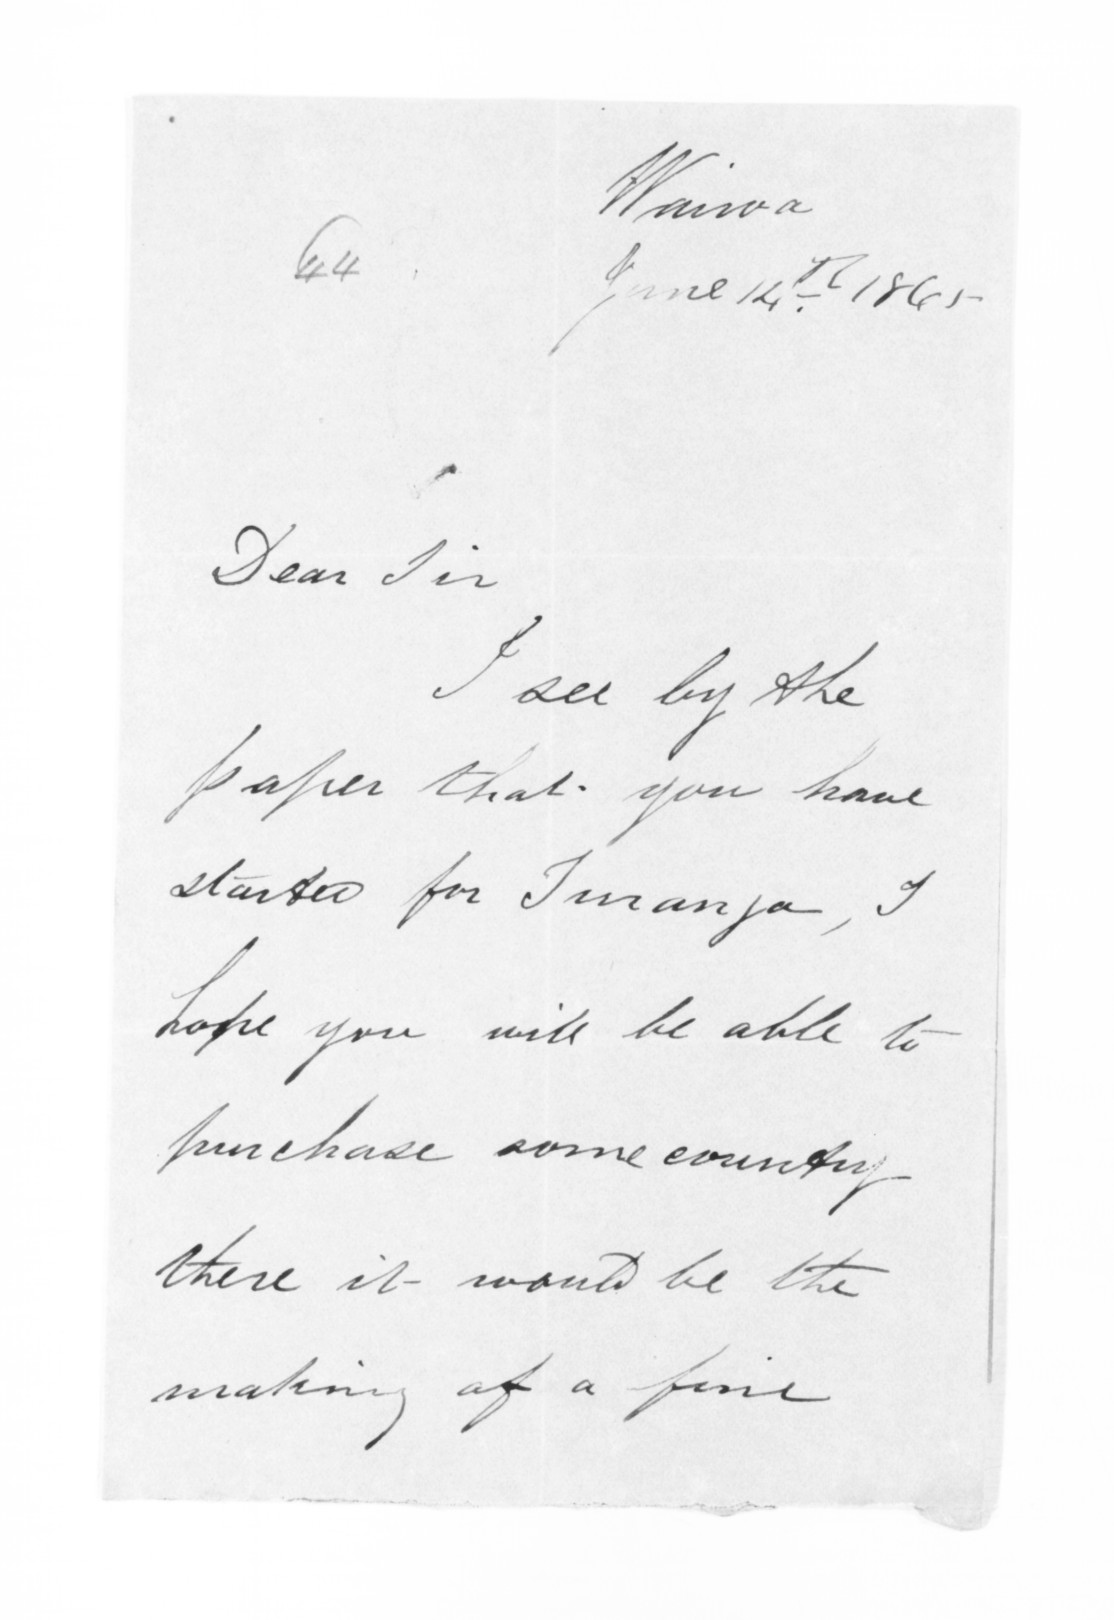 Wairoa
44
June 14th 1865
Dear Sir
I see by the
paper that you have
started for Turanga, I
hope you will be able to
purchase some country
there it would be the
making of a fine